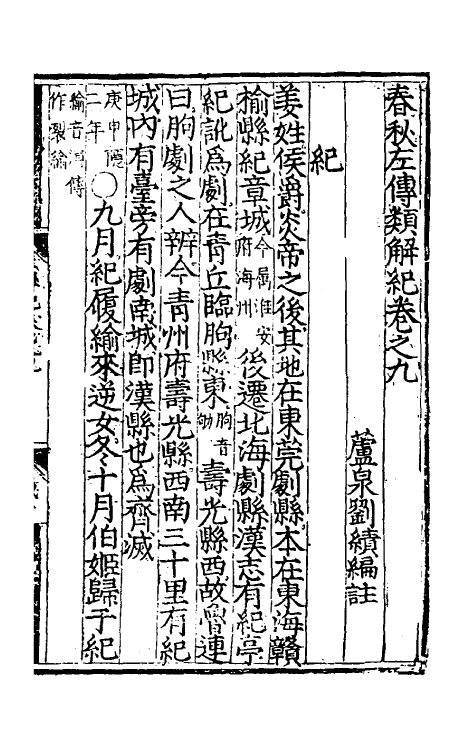 春秋左傳類解紀卷之九
蘆泉劉績編註
紀
姜姓侯爵炎帝之後其地在東莞劇縣本在東海贛
榆縣紀章城今屬淮安府海州後遷北海劇縣漢志有紀亭
紀訛爲劇在青丘臨朐縣東朐音劬壽光縣西故魯連
曰朐劇之人辨今青州府壽光縣西南三十里有紀
城內有臺旁有劇南城卽漢縣也爲齊滅
庚申隱二年〇九月紀履緰來逆女冬十月伯姬歸于紀
緰音須傳作裂繻